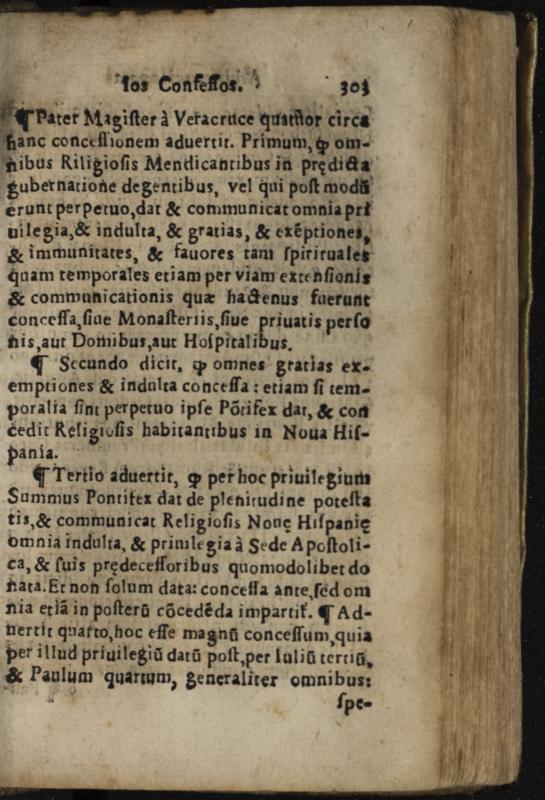 los Confessos. 303
¶ Pater Magister à Veracruce quattor circa
hanc concessionem aduertit. Primum, ꝙ om-
nibus Riligiosis Mendicantibus in prędicta
gubernatione degentibus, vel qui post modū
erunt perpetuo, dat & communicat omnia pri
uilegia, & indulta, & gratias, & exēptiones,
& immunitates, & fauores tam spirituales
quam temporales etiam per viam extensionis
& communicationis quæ hactenus fuerunt
concessa, siue Monasteriis, siue priuatis perso
nis, aut Domibus, aut Hospitalibus.
¶ Secundo dicit, ꝙ omnes gratias ex-
emptiones & indulta concessa : etiam si tem-
poralia sint perpetuo ipse Pōtifex dat, & con
cedit Religiosis habitantibus in Noua His-
pania.
¶ Tertio aduertit, ꝙ per hoc priuilegium
Summus Pontifex dat de plenitudine potesta
tis, & communicat Religiosis Nouę Hispanię
omnia indulta, & priuilegia à Sede Apostoli-
ca, & suis prędecessoribus quomodolibet do
nata. Et non solum data: concessa ante, sed om
nia etiā in posterū cōcedēda impartit̃. ¶ Ad-
uertit quarto, hoc esse magnū concessum, quia
per illud priuilegiū datū post, per Iuliū tertiū,
& Paulum quartum, generaliter omnibus:
spe-